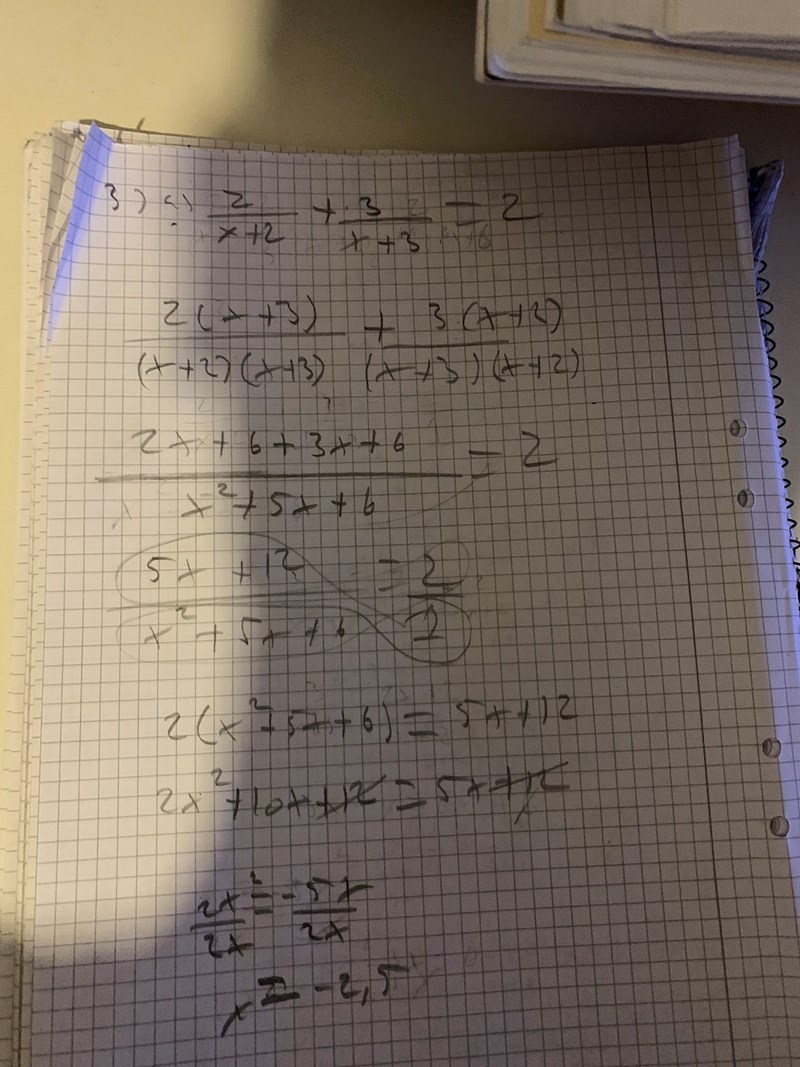 3) a) 2/(x+2) + 3/(x+3) = 2
2(x+3)/((x+2)(x+3)) + 3(x+2)/((x+3)(x+2))
(2x+6+3x+6)/(x²+5x+6) = 2
(5x+12)/(x²+5x+6) = 2/1
2(x²+5x+6) = 5x+12
2x²+10x+12 = 5x+12
2x²/2x = -5x/2x
x = -2,5